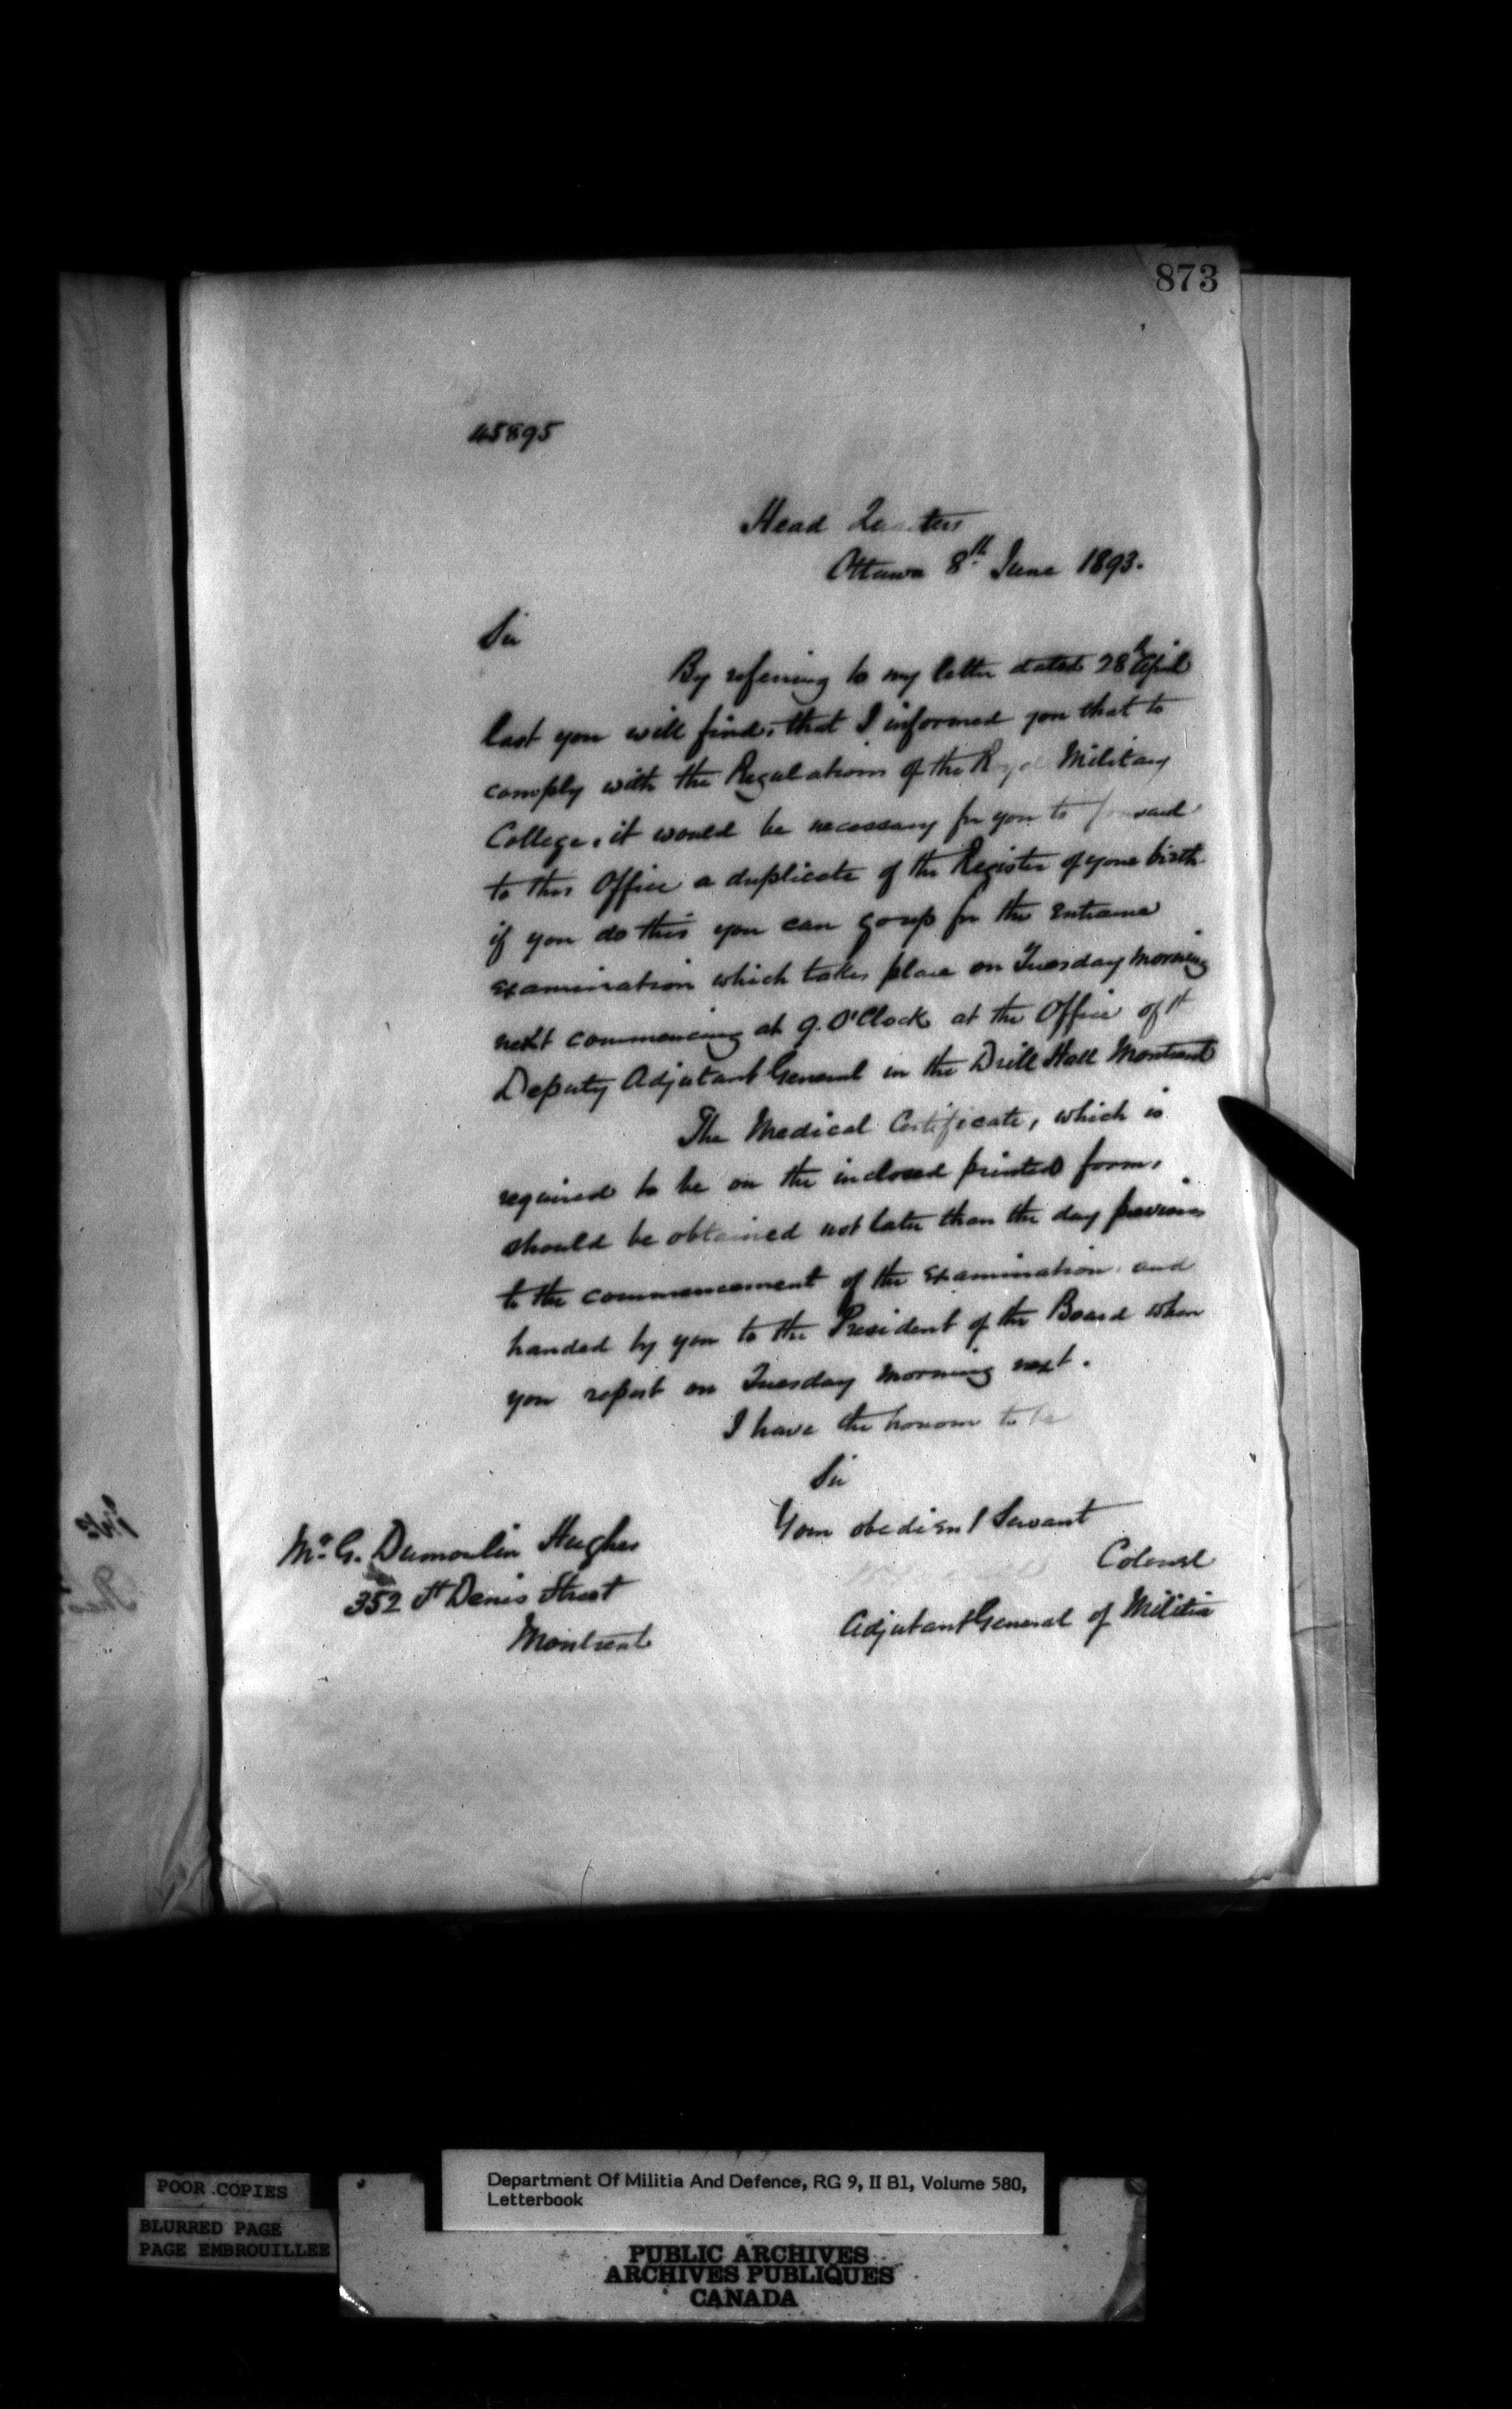 873
45895
Head Quarters
Ottawa 8th June 1893.
Sir
By referring to my letter dated 28th April
last you will find, that I informed you that to
comply with the Regulations of the Royal Military
College, it would be necessary for you to forward
to this Office a duplicate of the Register of your birth
if you do this you can go up for the entrance
examination which takes place on Tuesday morning
next commencing at 9. O'Clock at the Office of the
Deputy Adjutant General in the Drill Hall Montreal
The Medical Certificate, which is
required to be on the inclosed printed form,
should be obtained not later than the day previous
to the commencement of the examination and
handed by you to the President of the Board when
you report on Tuesday morning next.
I have the honour to be
Sir
Your obedient Servant
Colonel
Adjutant General of Militia
Mr G. Dumoulin Hughes
352 St Denis Street
Montreal
POOR COPIES
BLURRED PAGE
PAGE EMBROUILLEE
Department Of Militia And Defence, RG 9, II B1, Volume 580,
Letterbook
PUBLIC ARCHIVES
ARCHIVES PUBLIQUES
CANADA